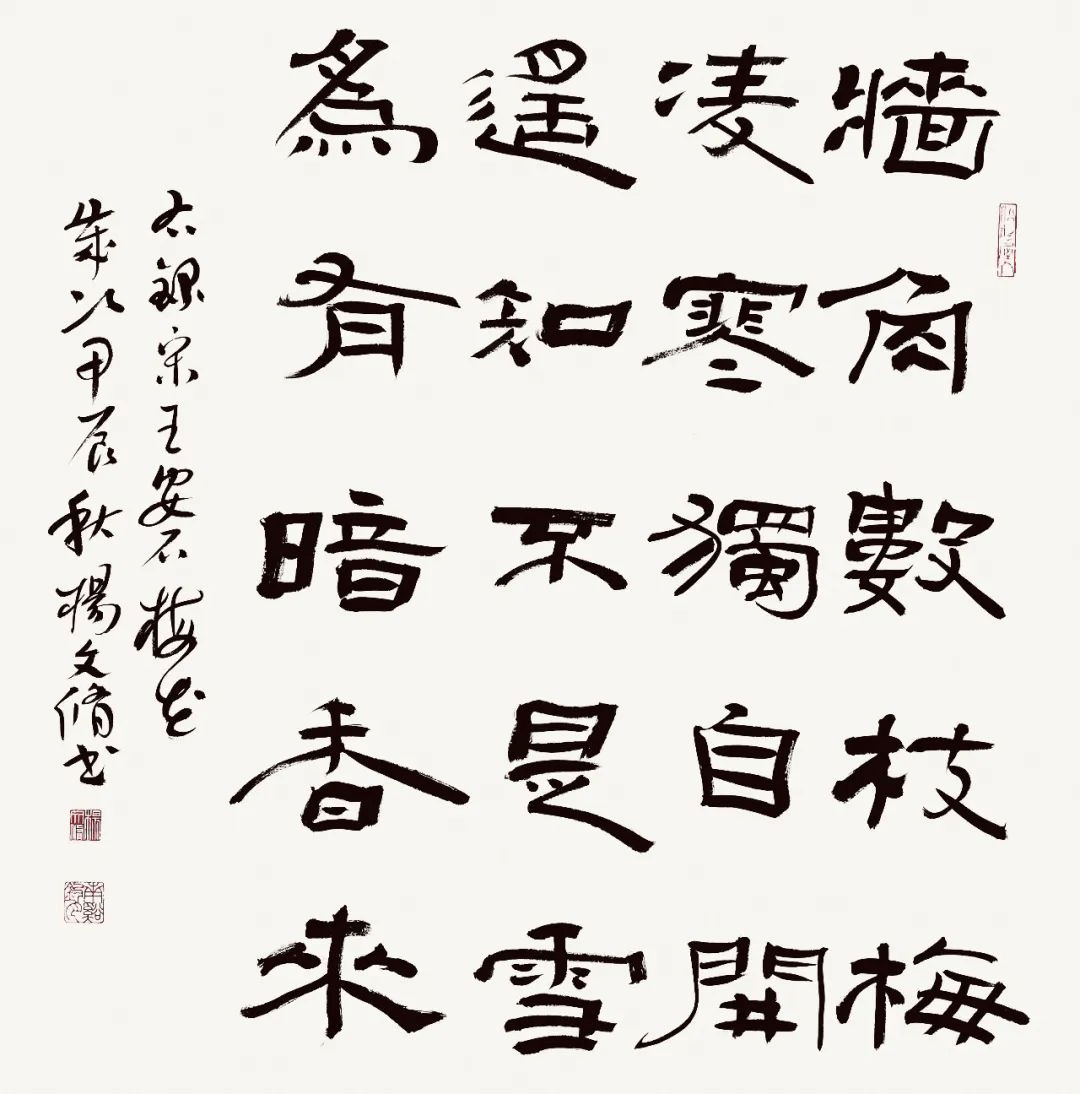 牆角數枝梅
凌寒獨自開
遥知不是雪
為有暗香來
右錄宋王安石梅花
歲次甲辰秋楊文脩书